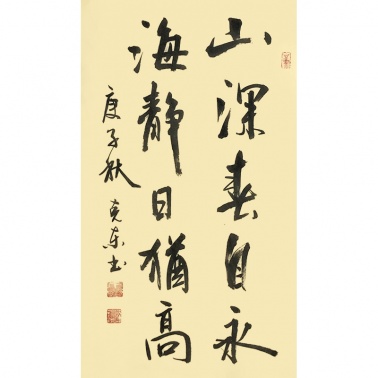 山深春自永
海静日猶高
庚子秋 克东书